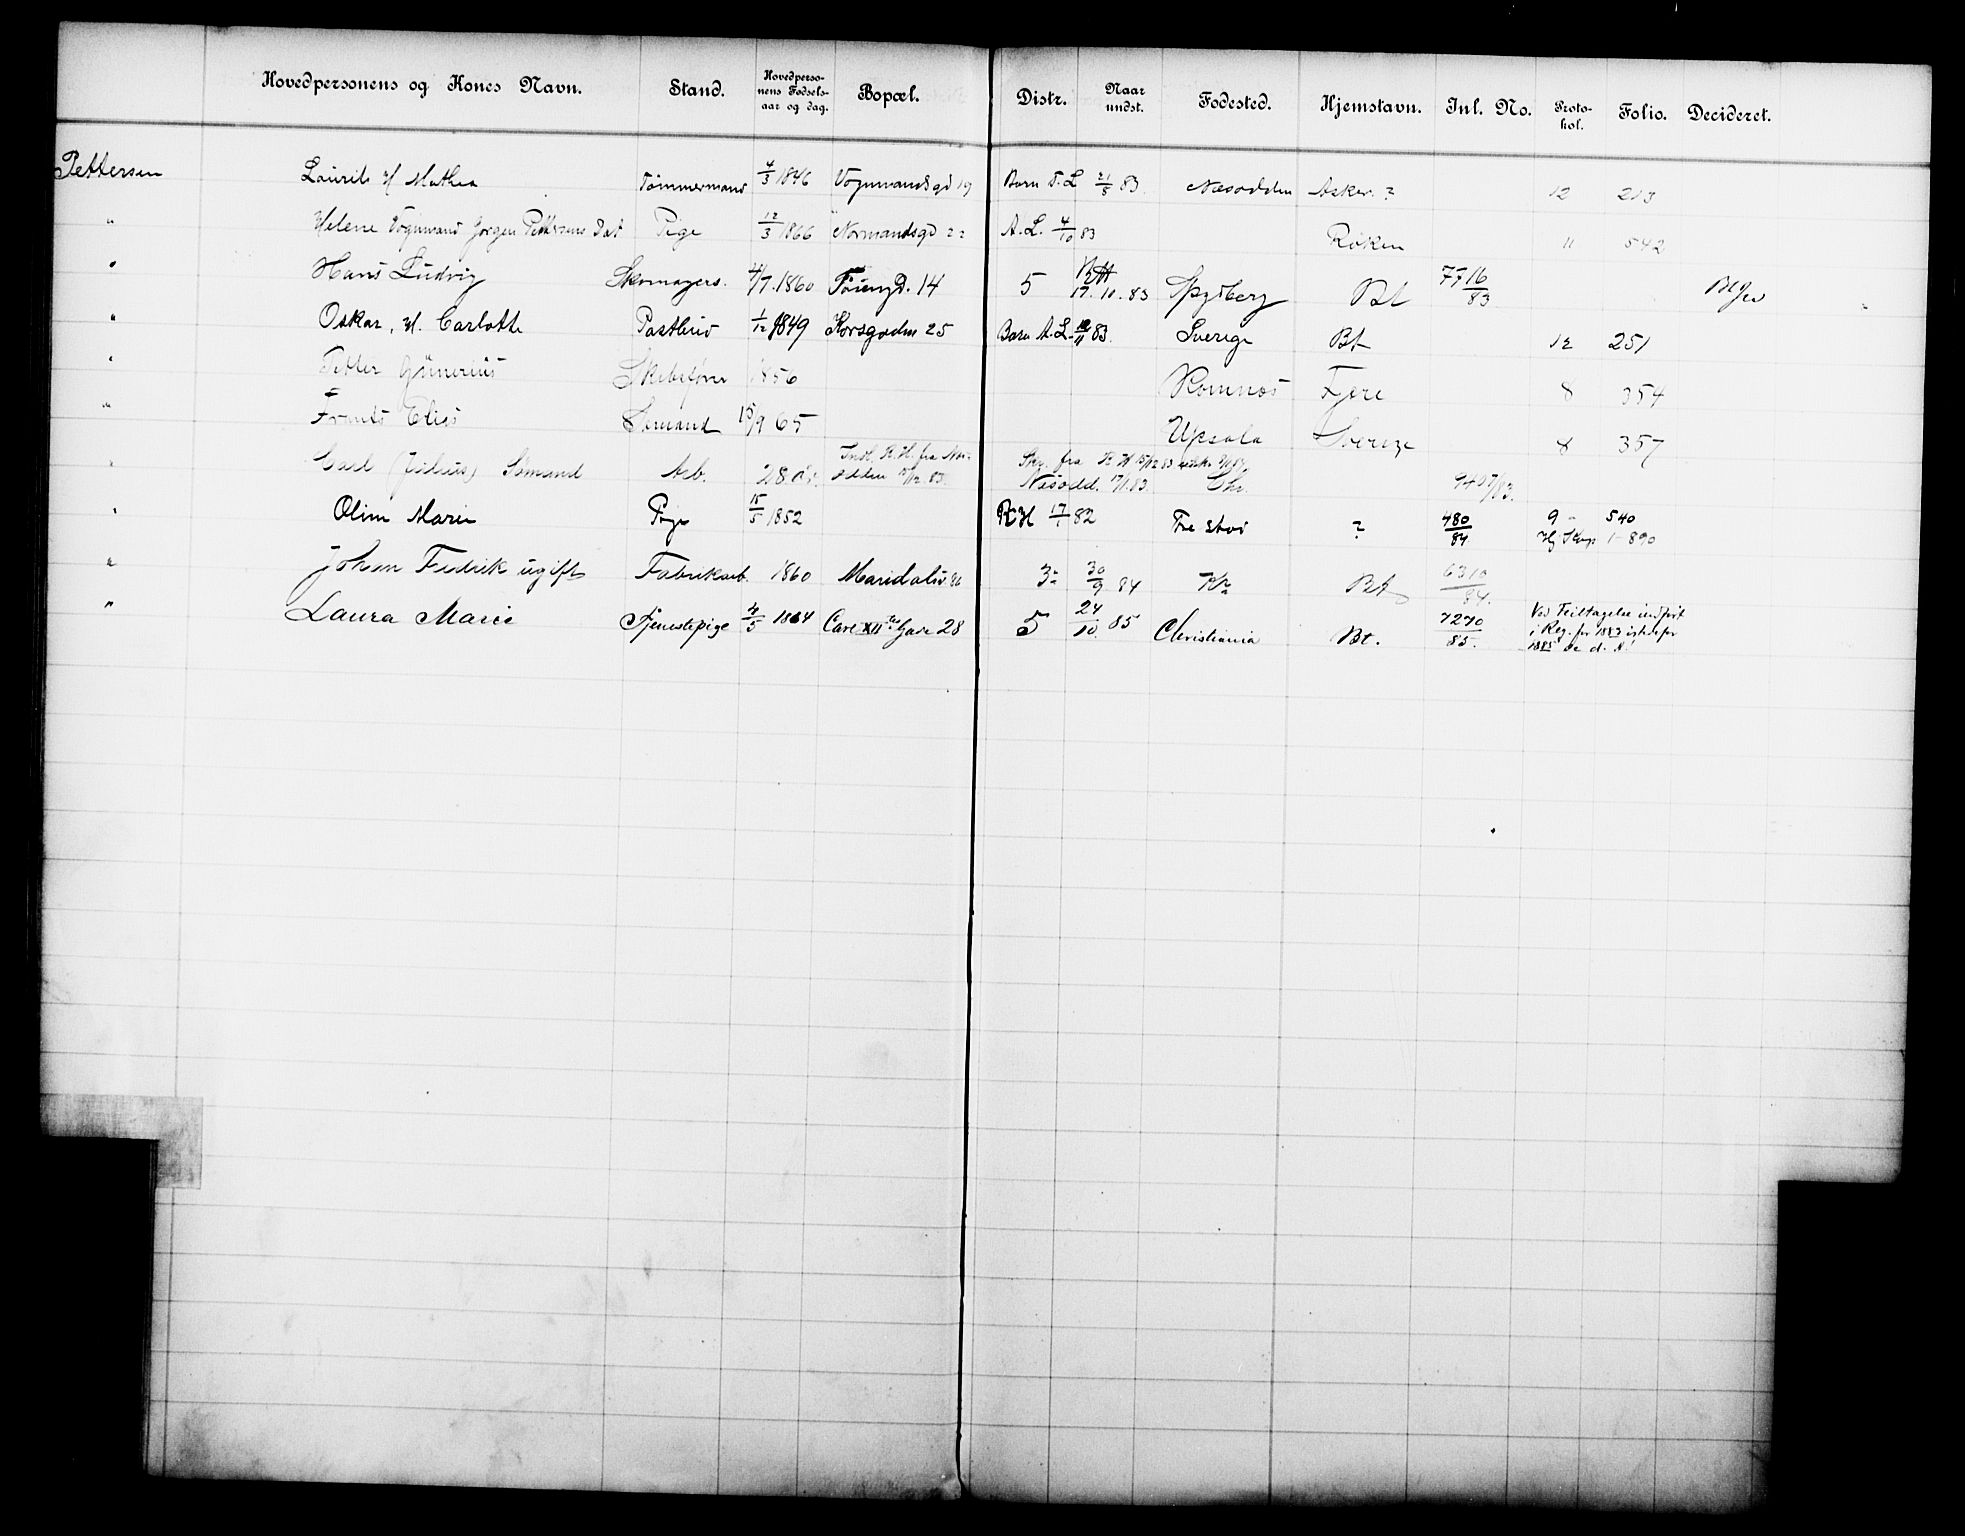 Hovedpersonens og Kones Navn. Stand. Hovedperso-nens Fødsels-aar og dag. Bopæl. Distr. Naar undst. Fødested. Hjemstavn. Inl. No. Proto-kol. Folio. Decideret.
Pettersen Laurits M/ Mathea Tömmermand 4/3 1846 Vognmandsgd 19 Barn T.L 21/5 83. Næsodden Asker. ? 12 213
" Helene Vognmand Jörgen Pettersens Dat Pige 12/3 1866 Normandsgd 22 A.L. 4/10 83 Röken 11 542
" Hans Ludvig Skomagers. 4/7. 1860 14 5 17. 10. 83 Spydberg Bt 7716/83
" Oskar, M. Carlotte Postbud 1/12 1849 Korsgaden 25 Barn A.L. 83. Sverige Bt 12 251
" Petter Gunerius 1856 Romnæs Fjere 8 354
" Frants Elias Sömand 15/9 65 Upsala Sverige 8 357
" Carl (Julius) Sömand Arb. 28 Aar. Indl. R.H. fra Næs-odden 83. Sky. fra R.H 15/12 83 Næsodd. 83. Chr. 9407/83.
" Oline Marie Pige 15/5 1852 RH 17/1 82 ? 480/84 9 - 540
1 - 890
" Johan Fredrik ugift Fabrikarb. 1860 Maridalsv 86 3 30/9 84 Kra Bt 6310/84.
" Laura Marie Tjenestepige 4/5 1864 Carl XII tes Gade 28 5 24/10. 85 Christiania Bt. 7270/85. Ved Feiltagelse indført
i Reg. for 1883 istedefor
1885 se d. A!